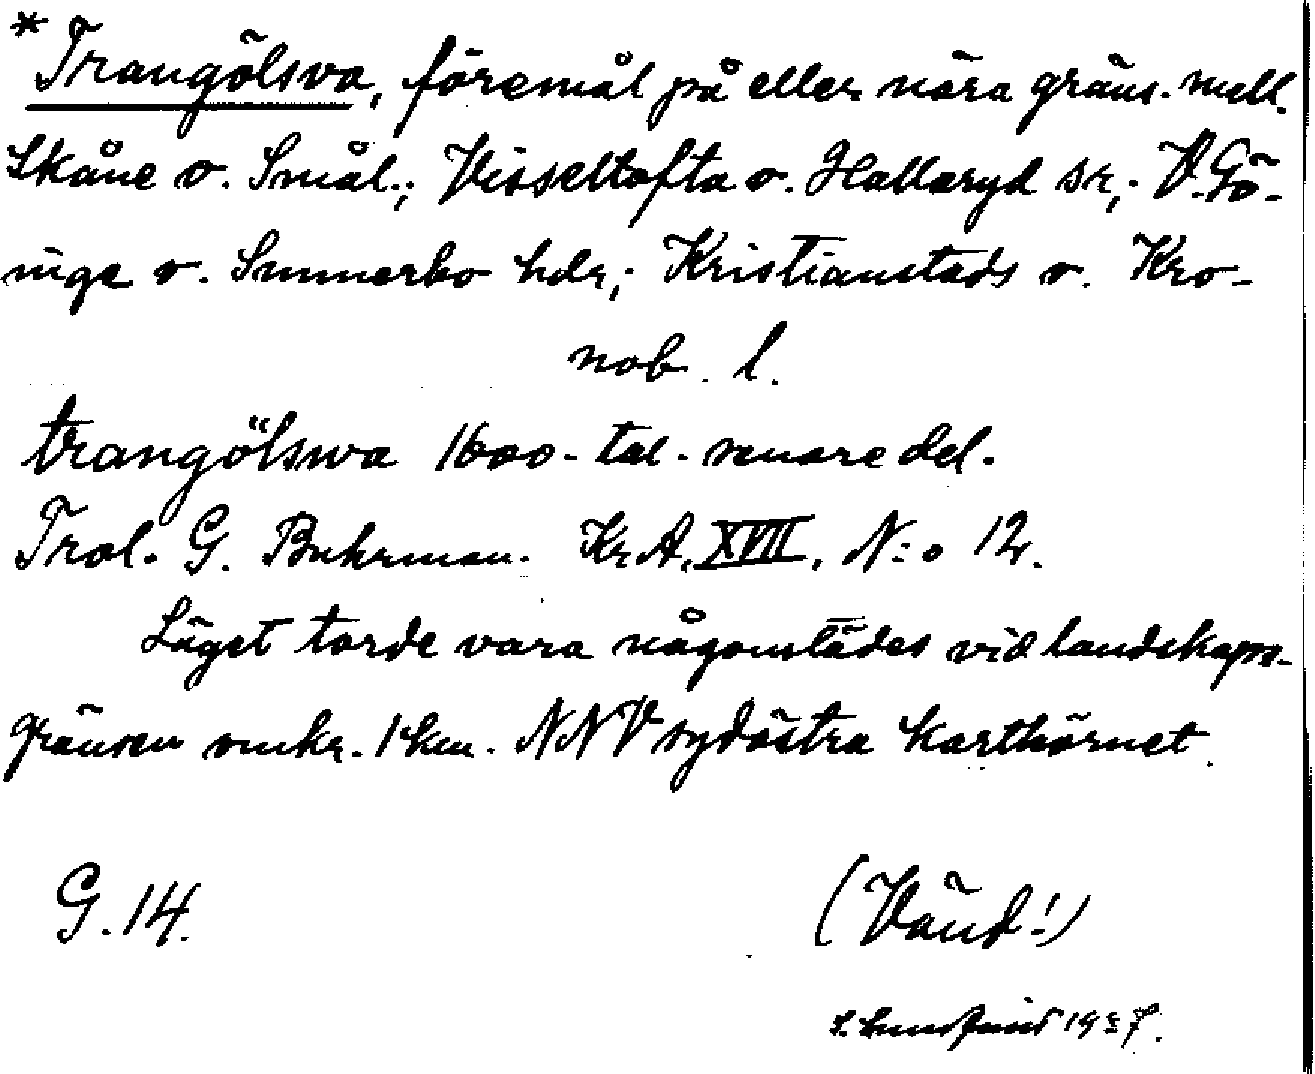 * Trangölsva, föremål på eller nära gräns. mell.
Skåne o. Smål.; Visseltofta o. Hallaryd sr,; V. Gö-
inge o. Sunnerbo hdr,; Kristianstads o. Kro-
nob. l.
trangölswa 1600-tal. senare del.
Trol. G. Buhrman. KrA. XVII. N:o 12.
Läget torde vara någonstädes vid landskaps-
gränsen omkr. 1 km. NNV sydöstra karthörnet.
G. 14.
(Vänd!)